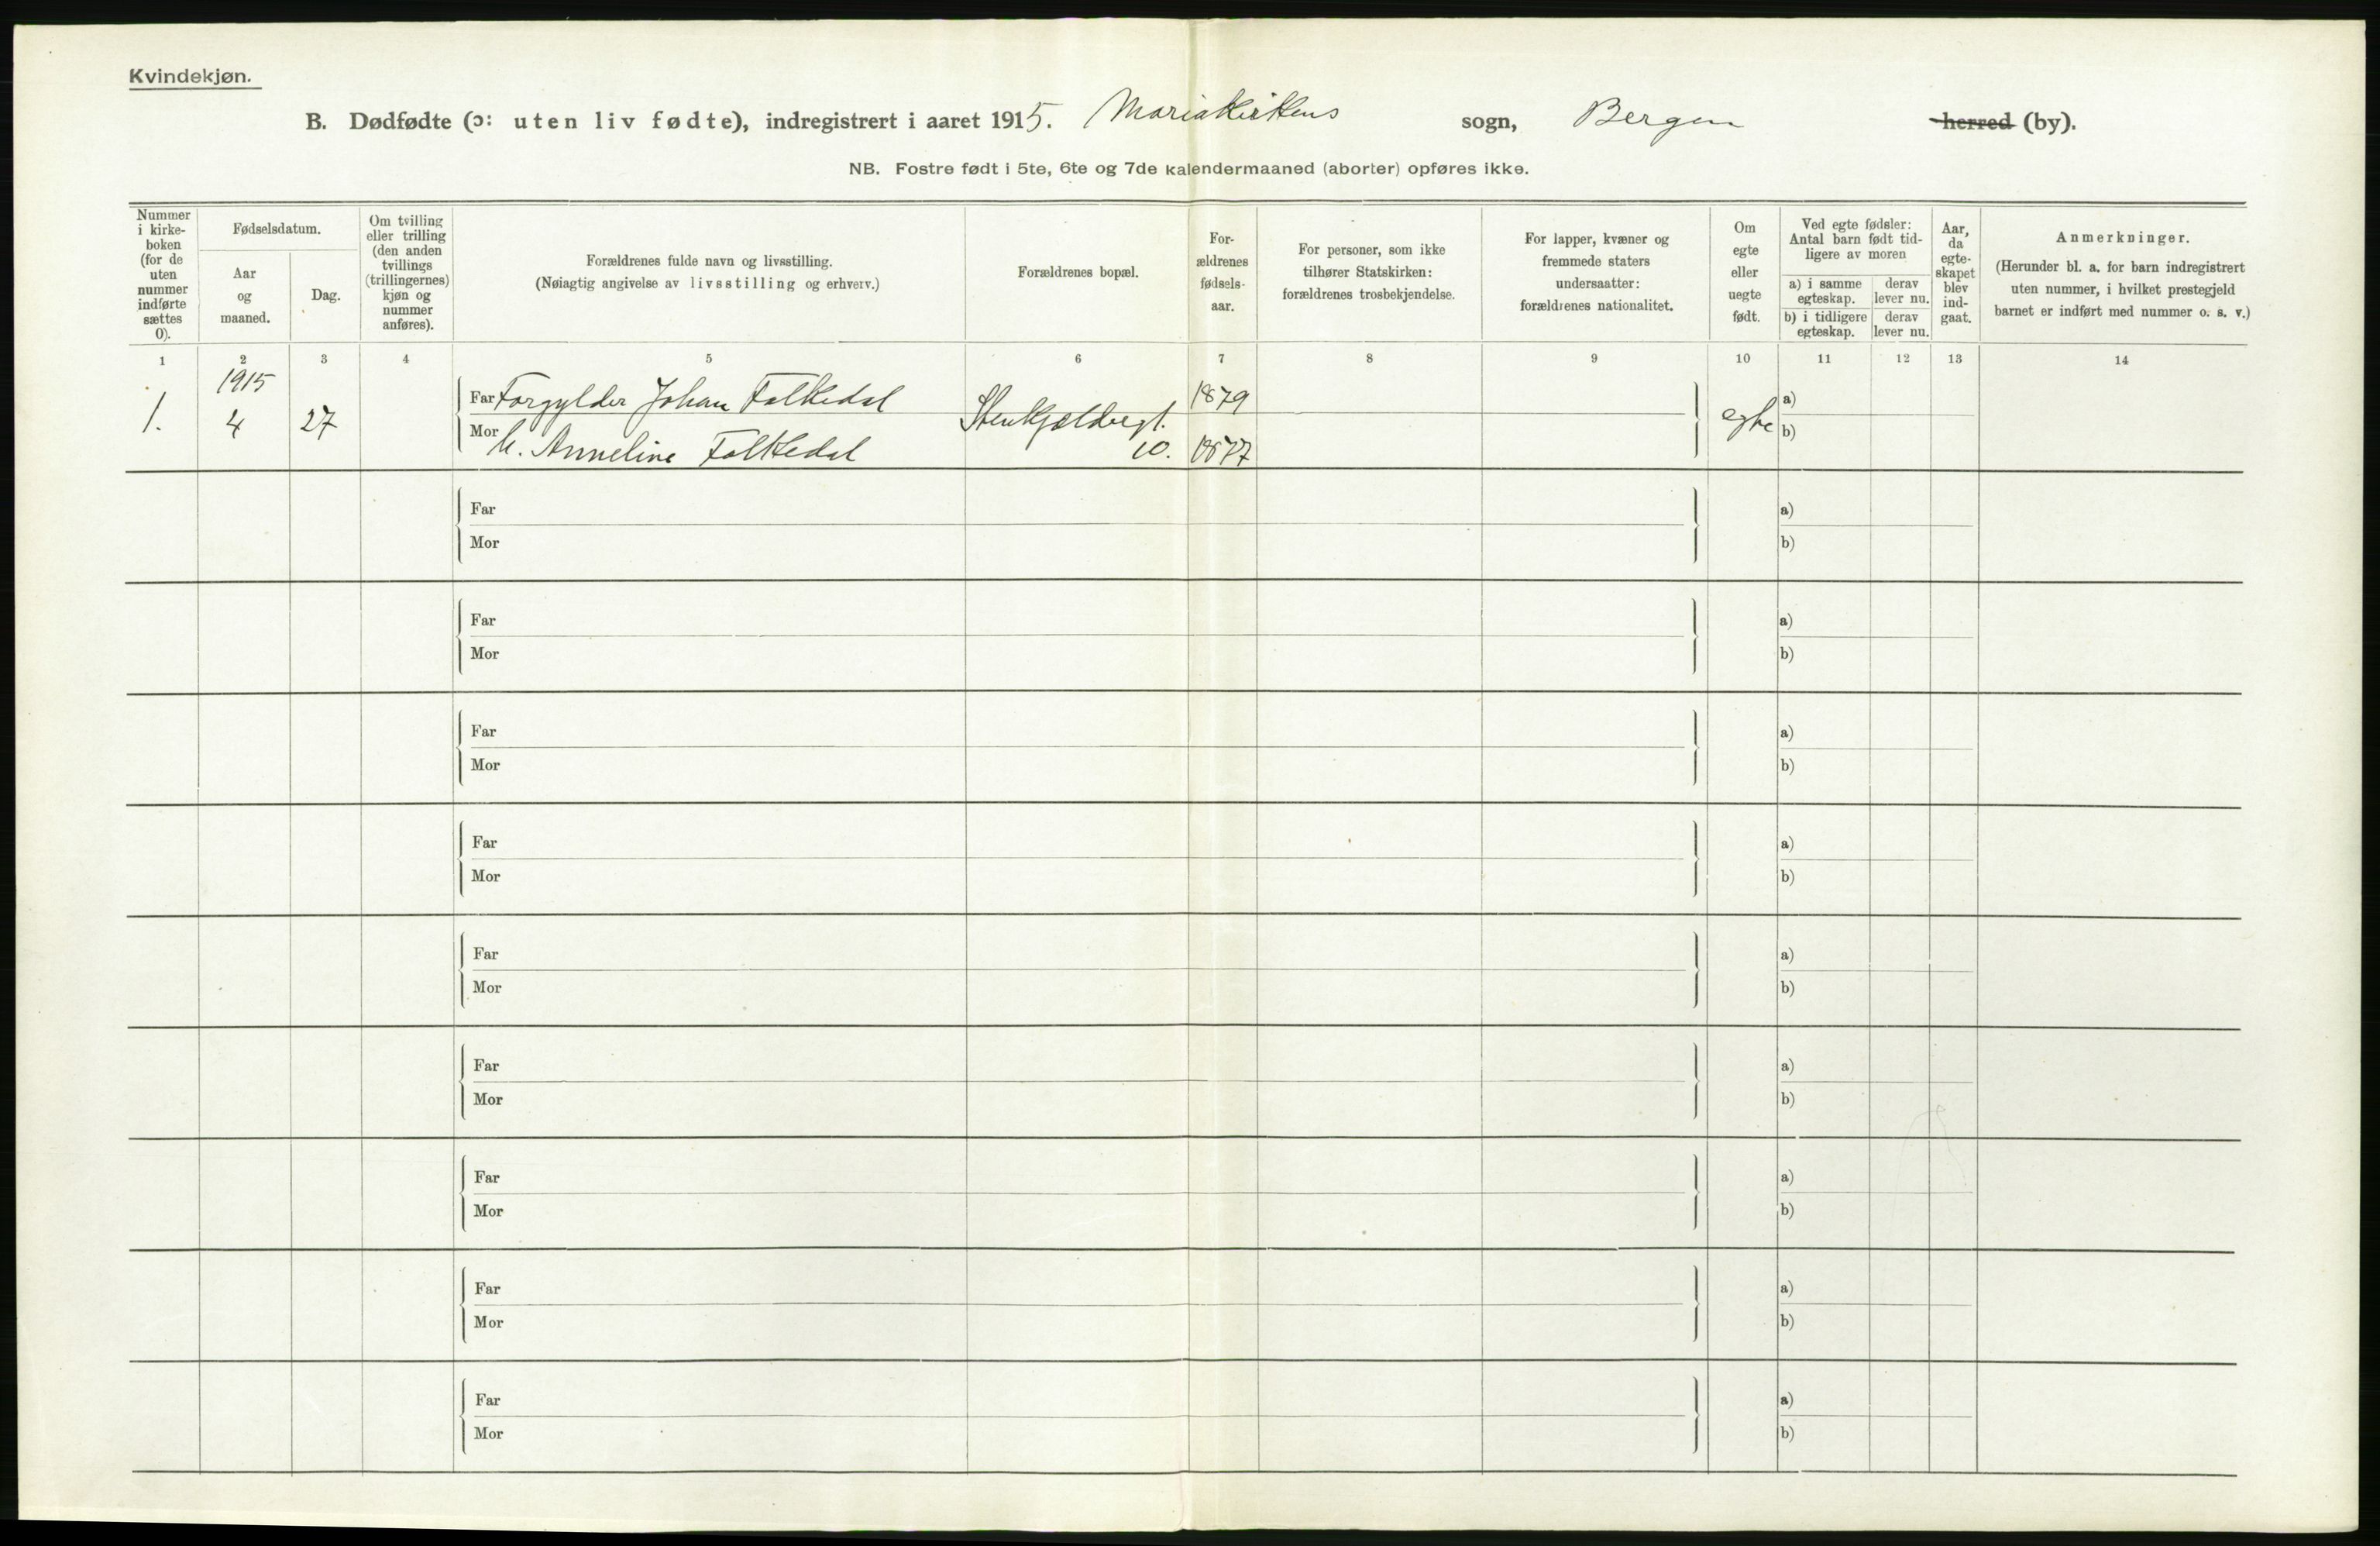 Kvindekjøn.
B. Dødfødte (ɔ: uten liv fødte), indregistrert i aaret 1915. Mariakirkens sogn, Bergen herred (by).
NB. Fostre født i 5te, 6te og 7de kalendermaaned (aborter) opføres ikke.
Nummer
i kirke-
boken
(for de
uten
nummer
indførte
sættes
0).
Fødselsdatum.
Aar
og
maaned.
Dag.
Om tvilling
eller trilling
(den anden
tvillings
(trillingernes)
kjøn og
nummer
anføres).
Forældrenes fulde navn og livsstilling.
(Nøiagtig angivelse av livsstilling og erhverv.)
Forældrenes bopæl.
For-
ældrenes
fødsels-
aar.
For personer, som ikke
tilhører Statskirken:
forældrenes trosbekjendelse.
For lapper, kvæner og
fremmede staters
undersaatter:
forældrenes nationalitet.
Om
egte
eller
uegte
født.
Ved egte fødsler:
Antal barn født tid-
ligere av moren
a) i samme
egteskap.
derav
lever nu.
b) i tidligere
egteskap.
derav
lever nu.
Aar,
da
egte-
skapet
blev
ind-
gaat.
Anmerkninger.
(Herunder bl. a. for barn indregistrert
uten nummer, i hvilket prestegjeld
barnet er indført med nummer o. s. v.)
1 2 3 4 5 6 7 8 9 10 11 12 13 14
1915
1. 4 27
Far Forgylder Johan Falkedal 1879 a)
Stenkjeldergt. egte
Mor h. Anneline Falkedal 10. 1877 b)
Far a)
Mor b)
Far a)
Mor b)
Far a)
Mor b)
Far a)
Mor b)
Far a)
Mor b)
Far a)
Mor b)
Far a)
Mor b)
Far a)
Mor b)
Far a)
Mor b)